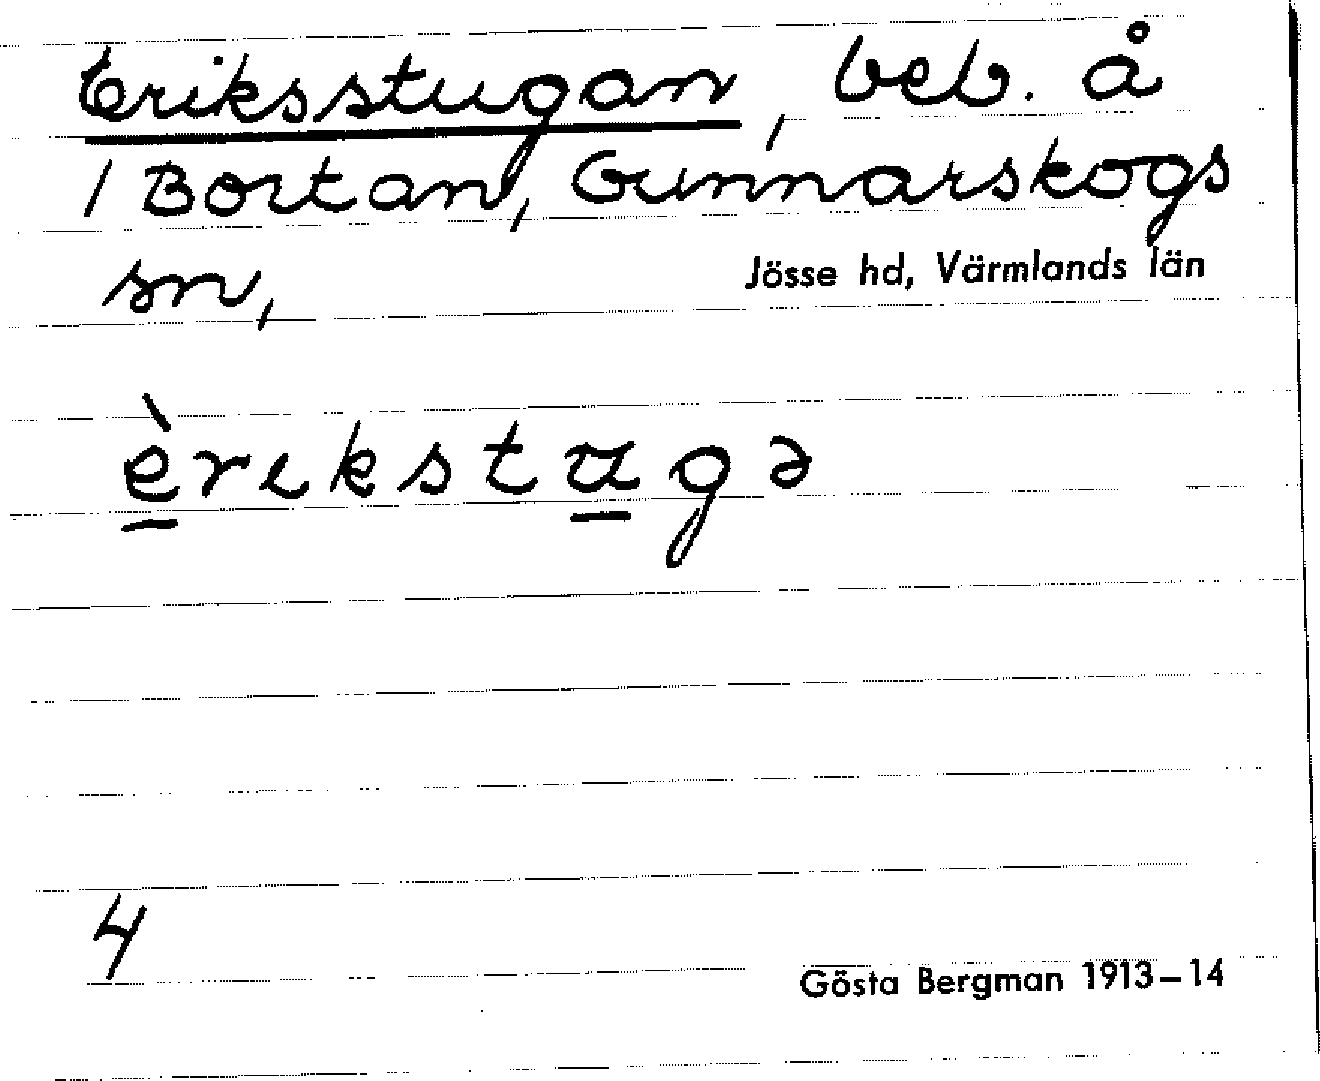 Eriksstugan, beb. å
/ Bortan, Gunnarskogs
sn, Jösse hd, Värmlands län
èrɩkstug̶ə
4
Gösta Bergman 1913–14